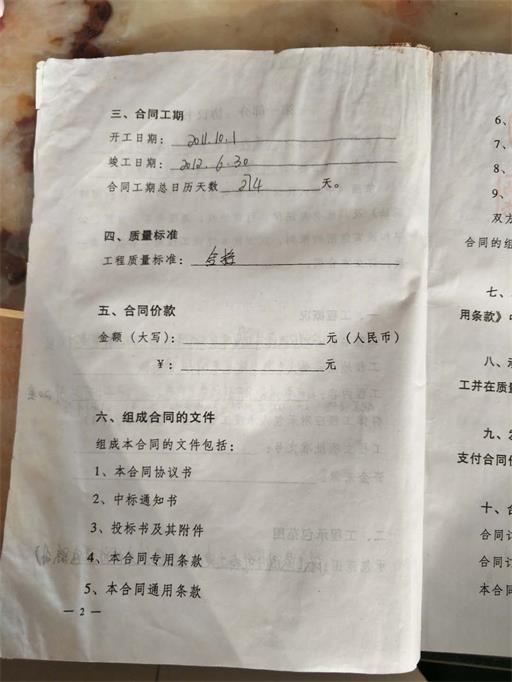 三、合同工期
开工日期：2011.10.1
竣工日期：2012.6.30
合同工期总日历天数 274 天。
四、质量标准
工程质量标准：合格
五、合同价款
金额（大写）：元（人民币）
¥：元
六、组成合同的文件
组成本合同的文件包括：
1、本合同协议书
2、中标通知书
3、投标书及其附件
4、本合同专用条款
5、本合同通用条款
— 2 —
6、
7、
8、
9、
双方
合同的组
七、
用条款》
八、
工并在质量
九、
支付合同
十、
合同订
合同订
本合同